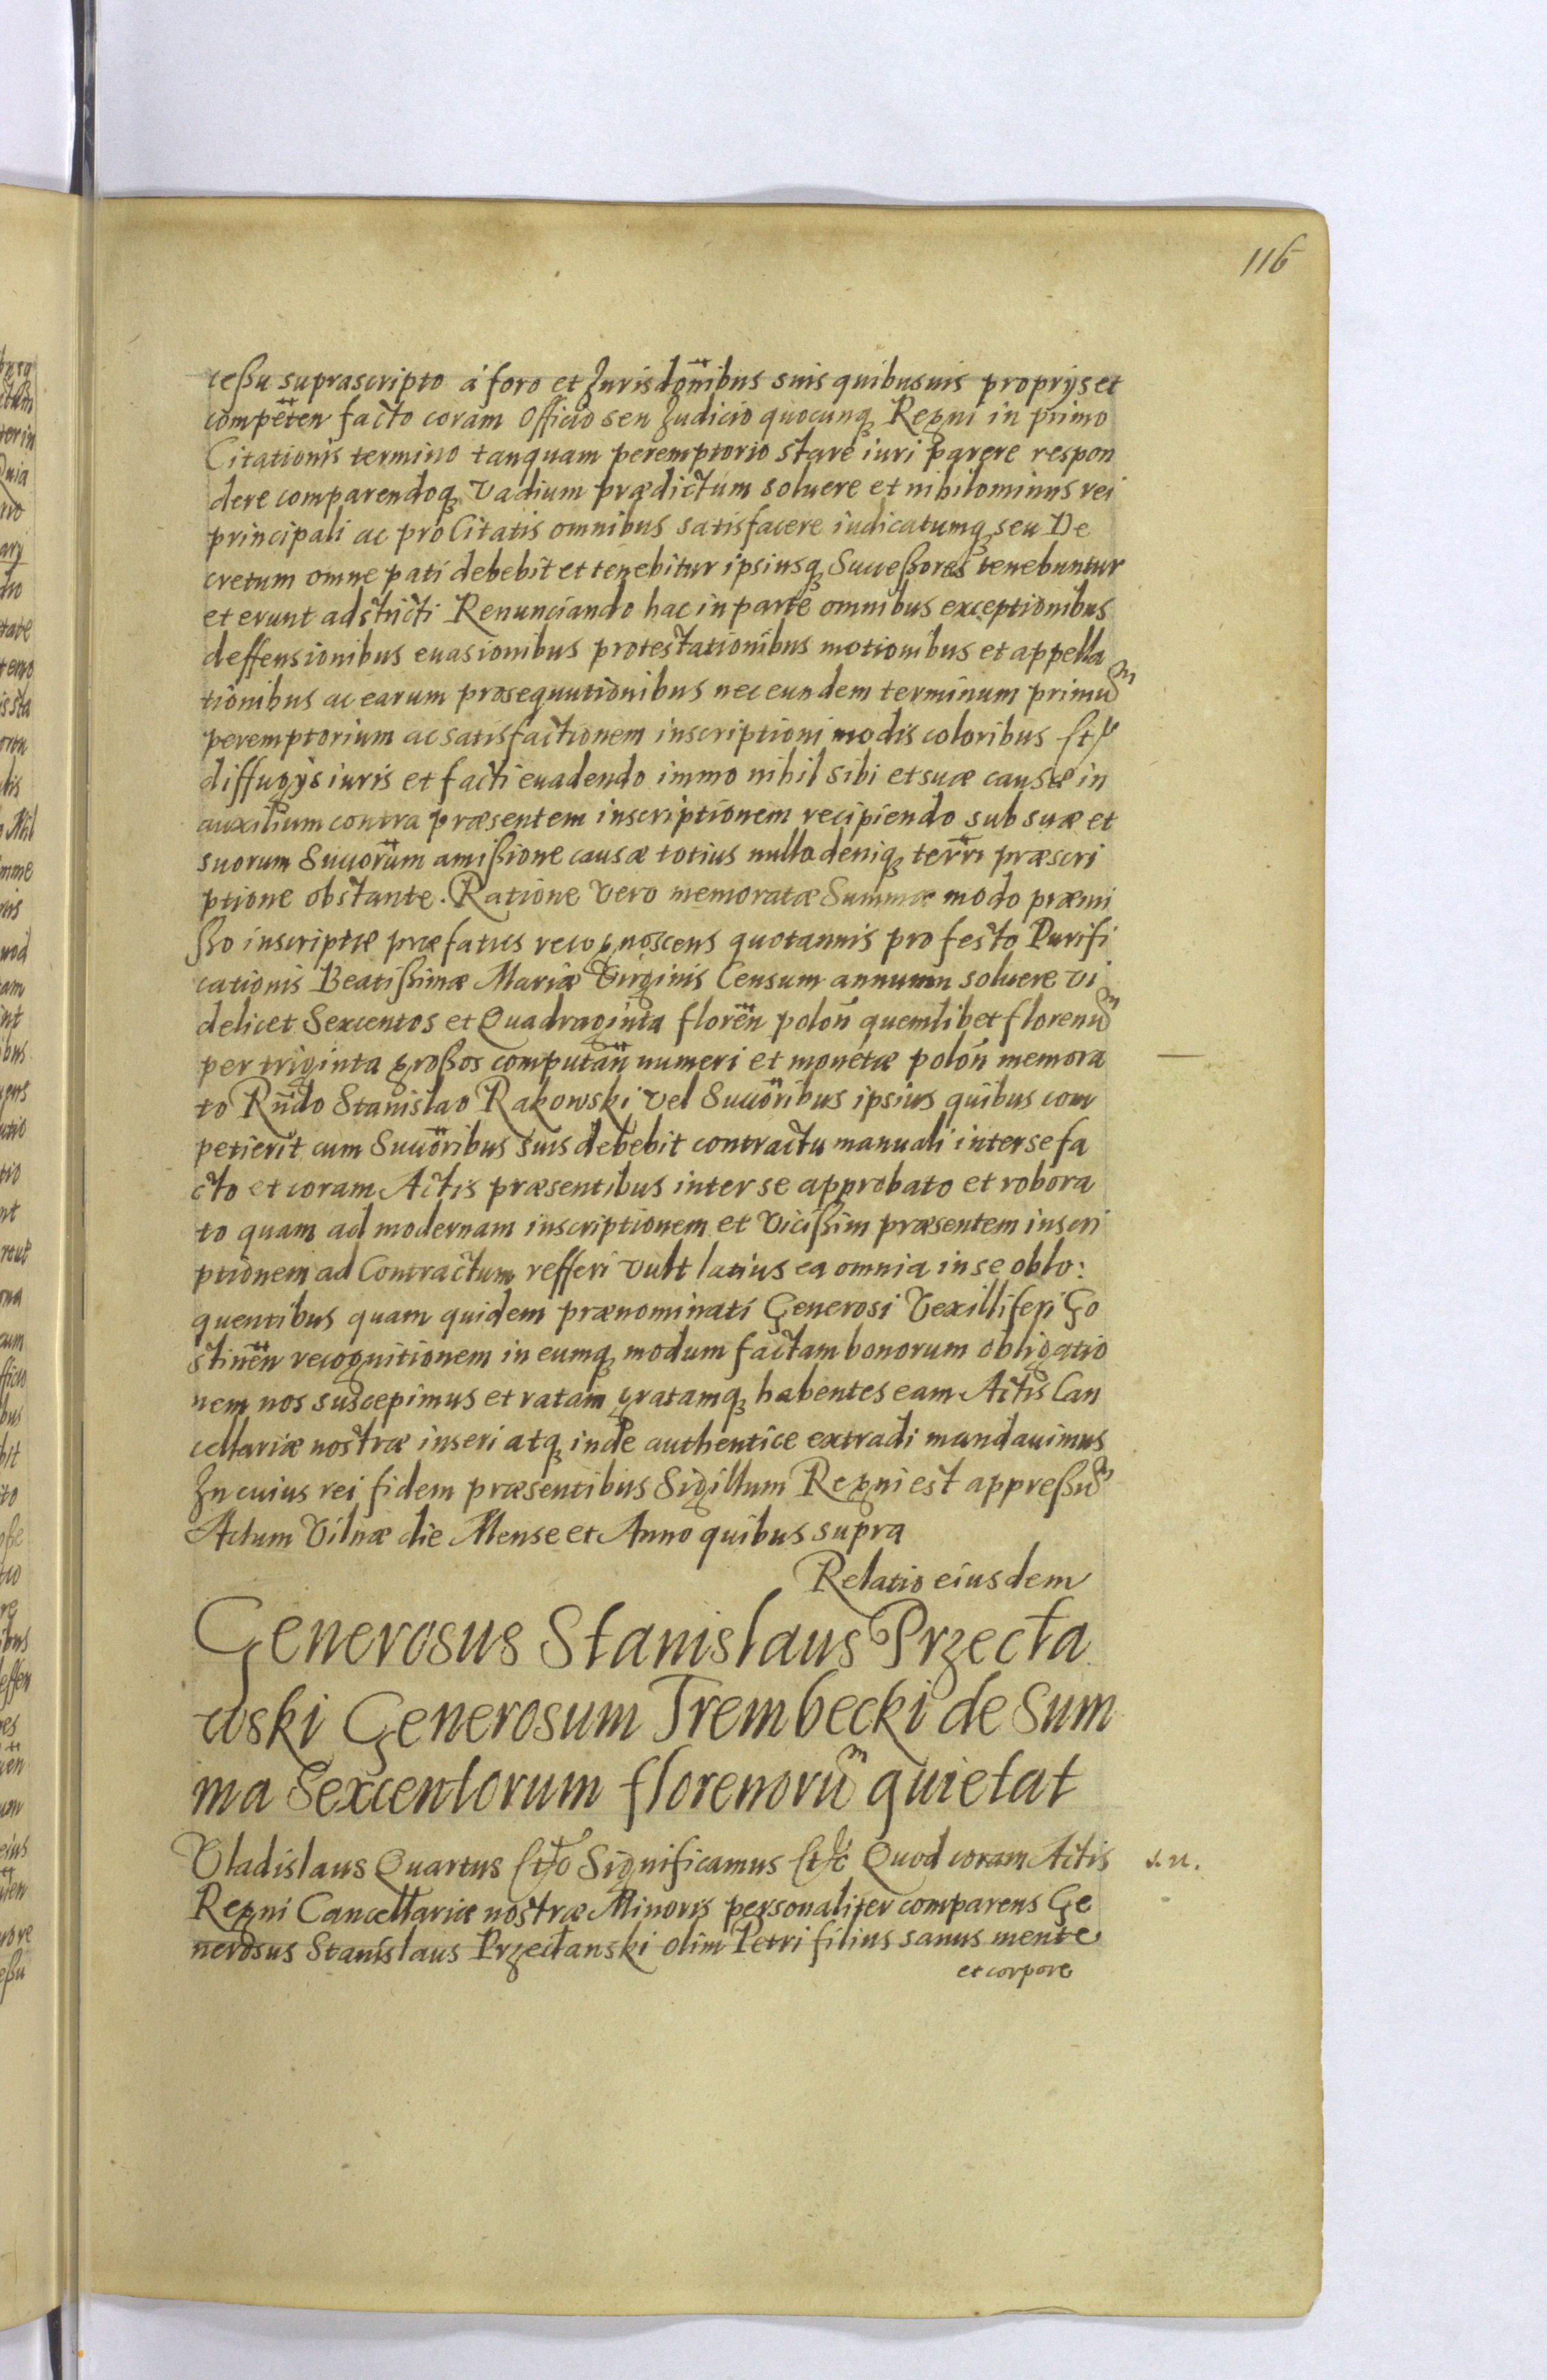 116
cessu suprascripto a foro et Jurisdonibus suis quibusuis proprijs et
competen facto coram Officio seu Judicio quocunq Regni in primo
Citationis termino tanquam peremptorio stare iuri parere respon
dere comparendoq Vadium prædictum soluere et nihilominus rei
principali ac pro Citatis omnibus satisfacere iudicatumq seu De
cretum omne pati debebit et tenebitur ipsiusq Successores tenebuntur
et erunt adstricti Renunciando hac in parte omnibus exceptionibus
deffensionibus euasionibus protestationibus motionibus et appella
tionibus ac earum prosequutionibus nec eundem terminum primum
peremptorium ac satisfactionem inscriptioni modis coloribus et
diffugijs iuris et facti euadendo immo nihil sibi et suæ causæ in
auxilium contra præsentem inscriptionem recipiendo sub suæ et
suorum Succorum amissione causæ totius nulla deniq terrı præscri
ptione obstante. Ratione Vero memoratæ Summæ modo præmi
sso inscriptæ præfatus recognoscens quotannis pro festo Purifi
cationis Beatissimæ Mariæ Virginis Censum annuum soluere Vi
delicet Sexcentos et Quadraginta floren polon quemlibet florenum
per triginta grossos computan numeri et monetæ polon memora
to Rndo Stanislao Rakowski Vel Succoribus ipsius quibus com
petierit cum Succoribus suis debebit contractu manuali inter se fa
cto et coram Actis præsentibus inter se approbato et robora
to quam ad modernam inscriptionem et Vicissim præsentem inscri
ptionem ad Contractum refferi vult latius ea omnia in se oblo:
quentibus quam quidem prænominati Generosi Vexilliferi Go
stinen recognitionem in eumq modum factam bonorum obligatio
nem nos suscepimus et ratam gratamq habentes eam Actis Can
cellariæ nostræ inseri atq inde authentice extradi mandauimus
In cuius rei fidem præsentibus Sigillum Regni est appressum
Actum Vilnæ die Mense et Anno quibus supra
Relatio eiusdem
Generosus Stanislaus Przecła
wski Generosum Trembecki de Sum
ma Sexcentorum florenorum quietat
Vladislaus Quartus etc Significamus etc Quod coram Actis s. n.
Regni Cancellariæ nostræ Minoris personaliter comparens Ge
nerosus Stanislaus Przecłanski olim Petri filius sanus mente
et corpore